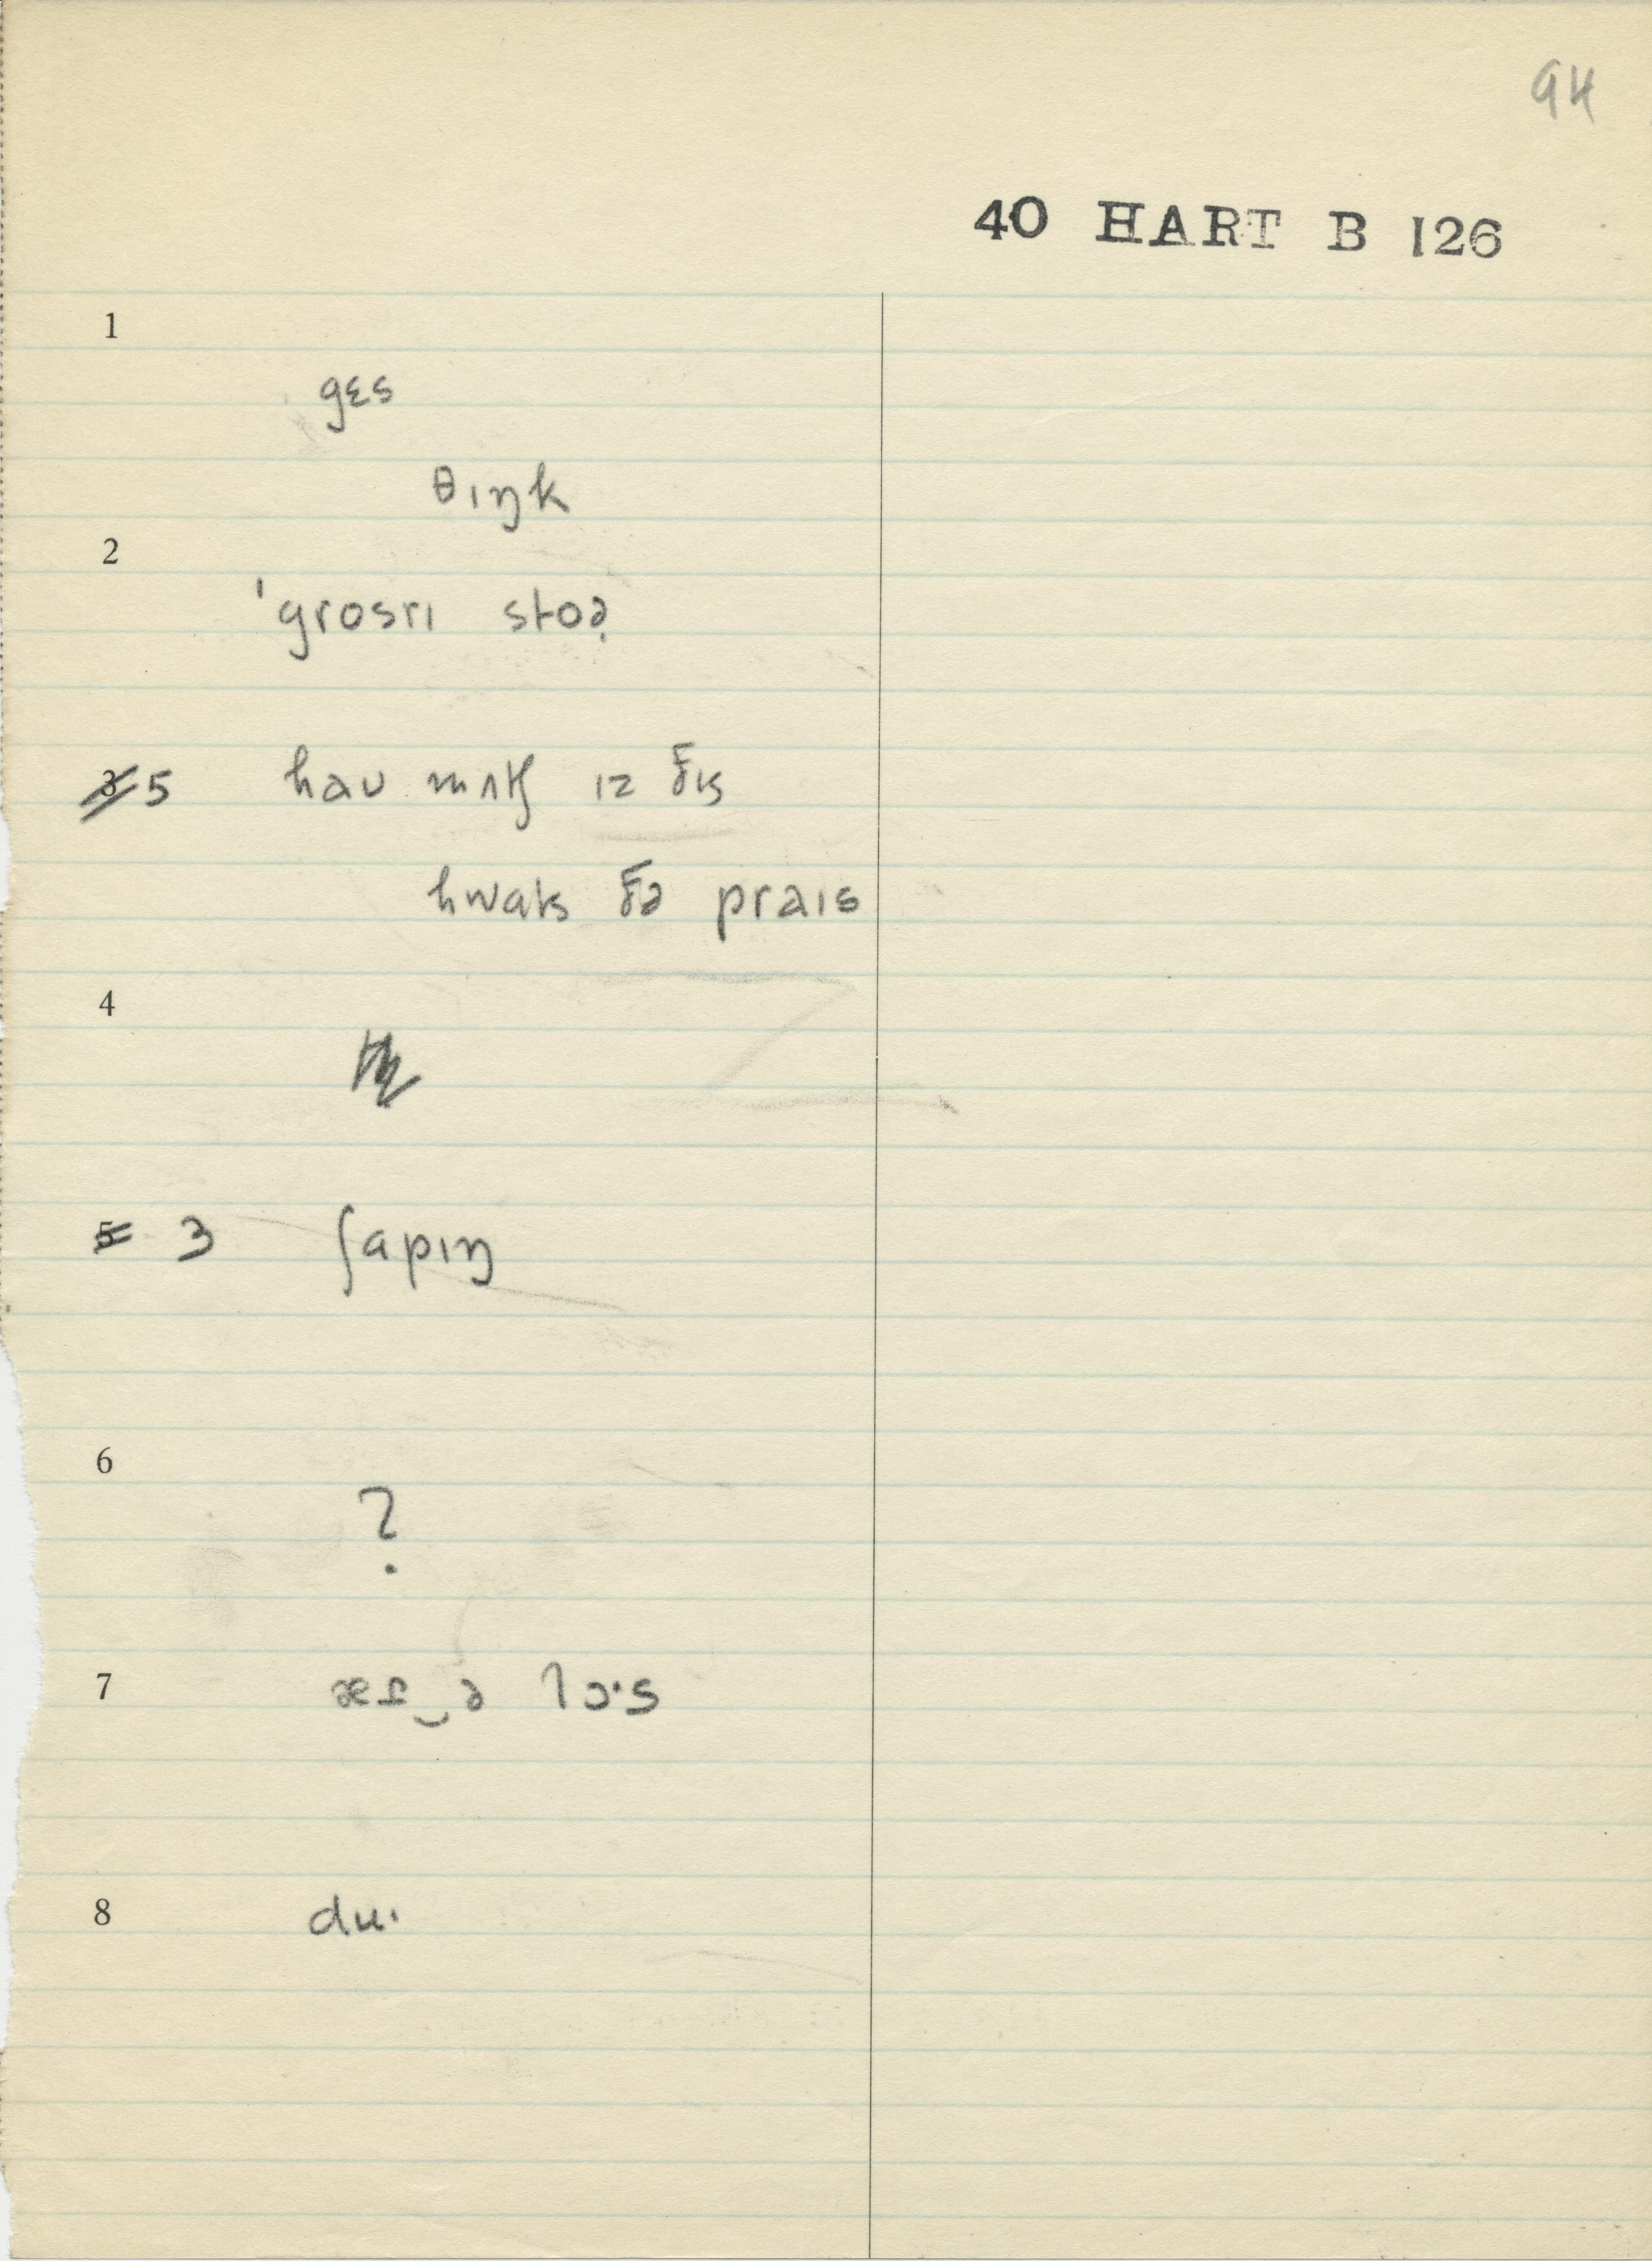 94
40 HART B 126
1
gɛs
θɪŋk
2
ˈgrosrɪ stoə̣
3 5 haʊ mʌtʃ ɪz ðɪs
hwats ðə praɪs
4
5 3 ʃapɪŋ
6
?
7 æt‿ə lɔˑs
8 duˑ